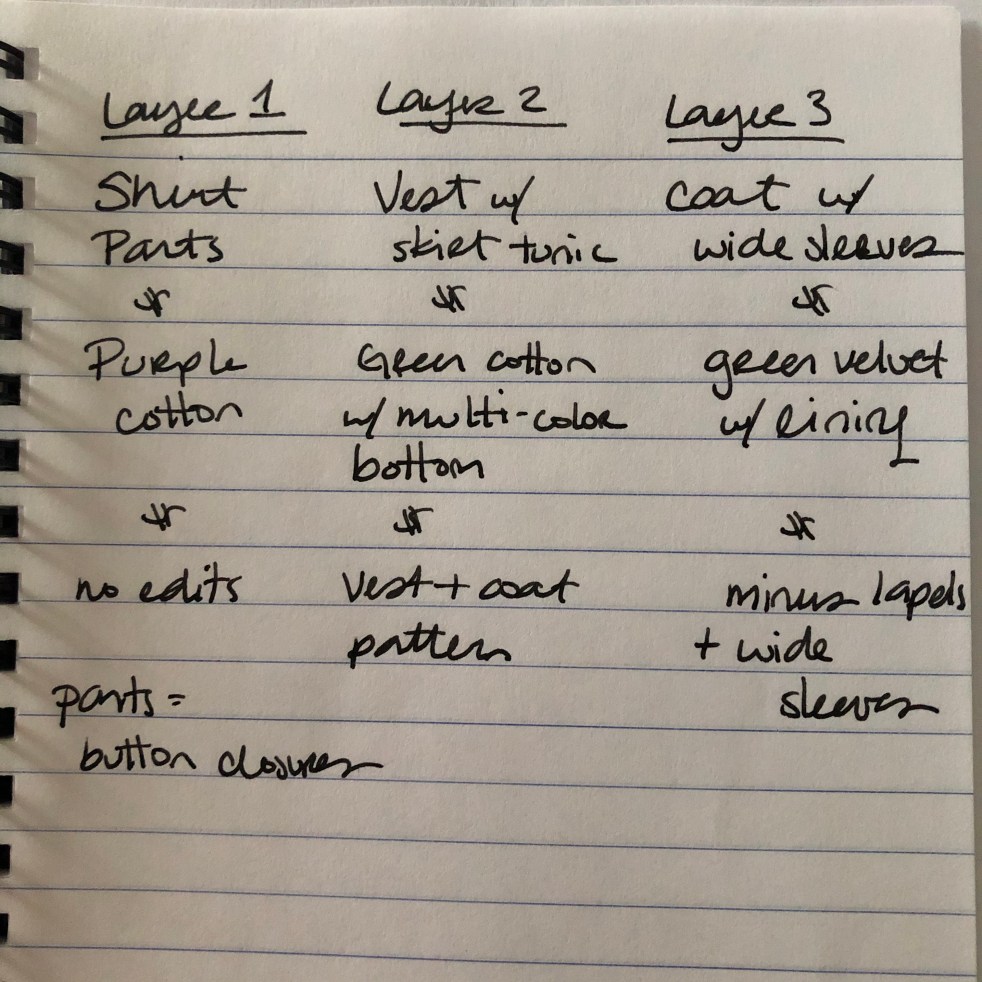 Layer 1
Shirt
Pants
Purple
cotton
no edits
pants =
button closures
Layer 2
Vest w/
skirt tunic
Green cotton
w/ multi-color
bottom
vest + coat
pattern
Layer 3
coat w/
wide sleeves
green velvet
w/ lining
minus lapels
+ wide
sleeves